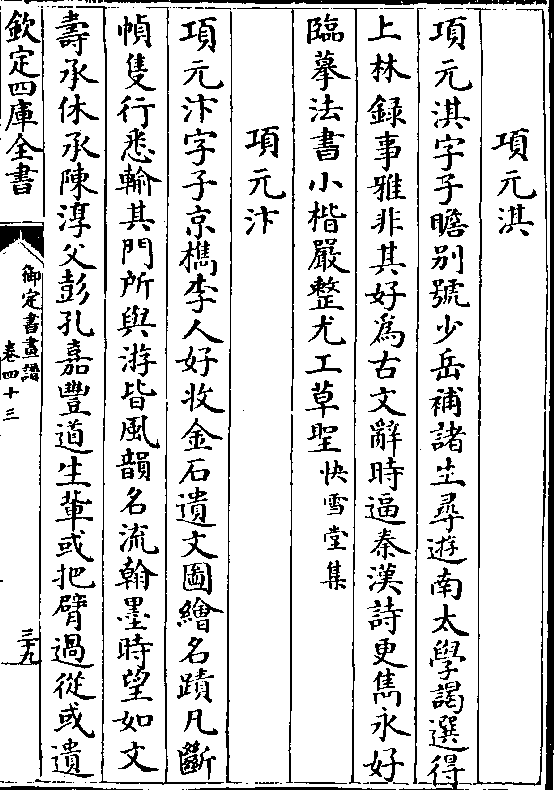 項元淇
項元淇字子瞻别號少岳補諸生尋遊南太學謁選得
上林録事雅非其好為古文辭時逼秦漢詩更雋永好
臨摹法書小楷嚴整尤工草聖快雪堂集
項元汴
項元汴字子京檇李人好收金石遺文圖繪名蹟凡斷
幀隻行悉輸其門所與游皆風韻名流翰墨時望如文
壽承休承陳淳父彭孔嘉豐道生輩或把臂過從或遺
欽定四庫全書
御定書畫譜
卷四十三
三十九